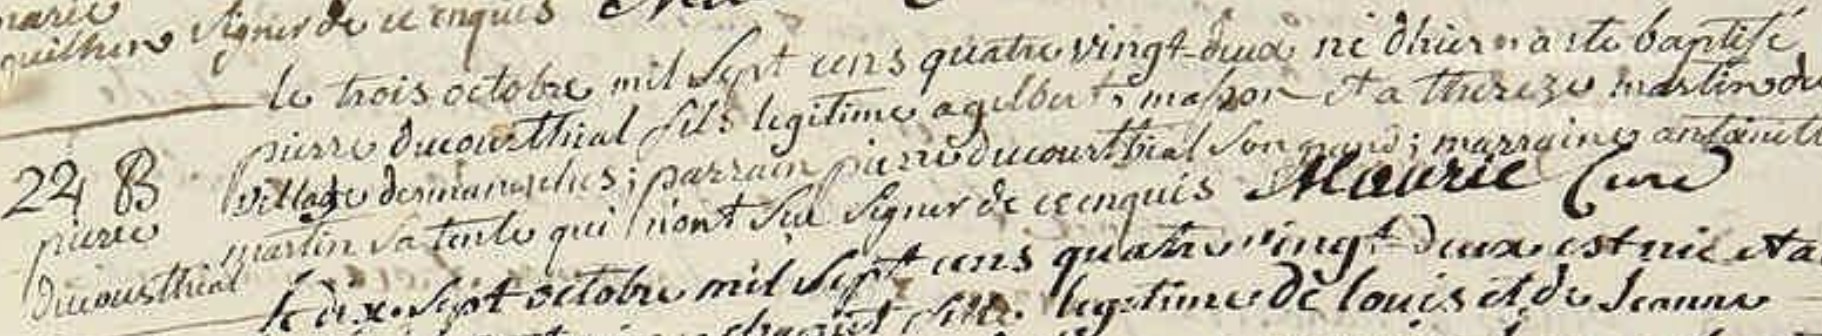 marie
guilhen signer de ce enquis
le trois octobre mil sept cens quatre vingt-deux né d'hier a ete baptisé
pierre ducourthial fils legitime a gilbert, masson et a thereze martin du
22 B village des ; parrain pierre ducourthial son grand ; marraine antoinette
pierre martin sa tente qui n'ont seu signer de ce enquis Maurie Curé
ducourthial
le dix sept octobre mil sept cens quatre vingt deux est née et a
legitime de louis et de Jeanne